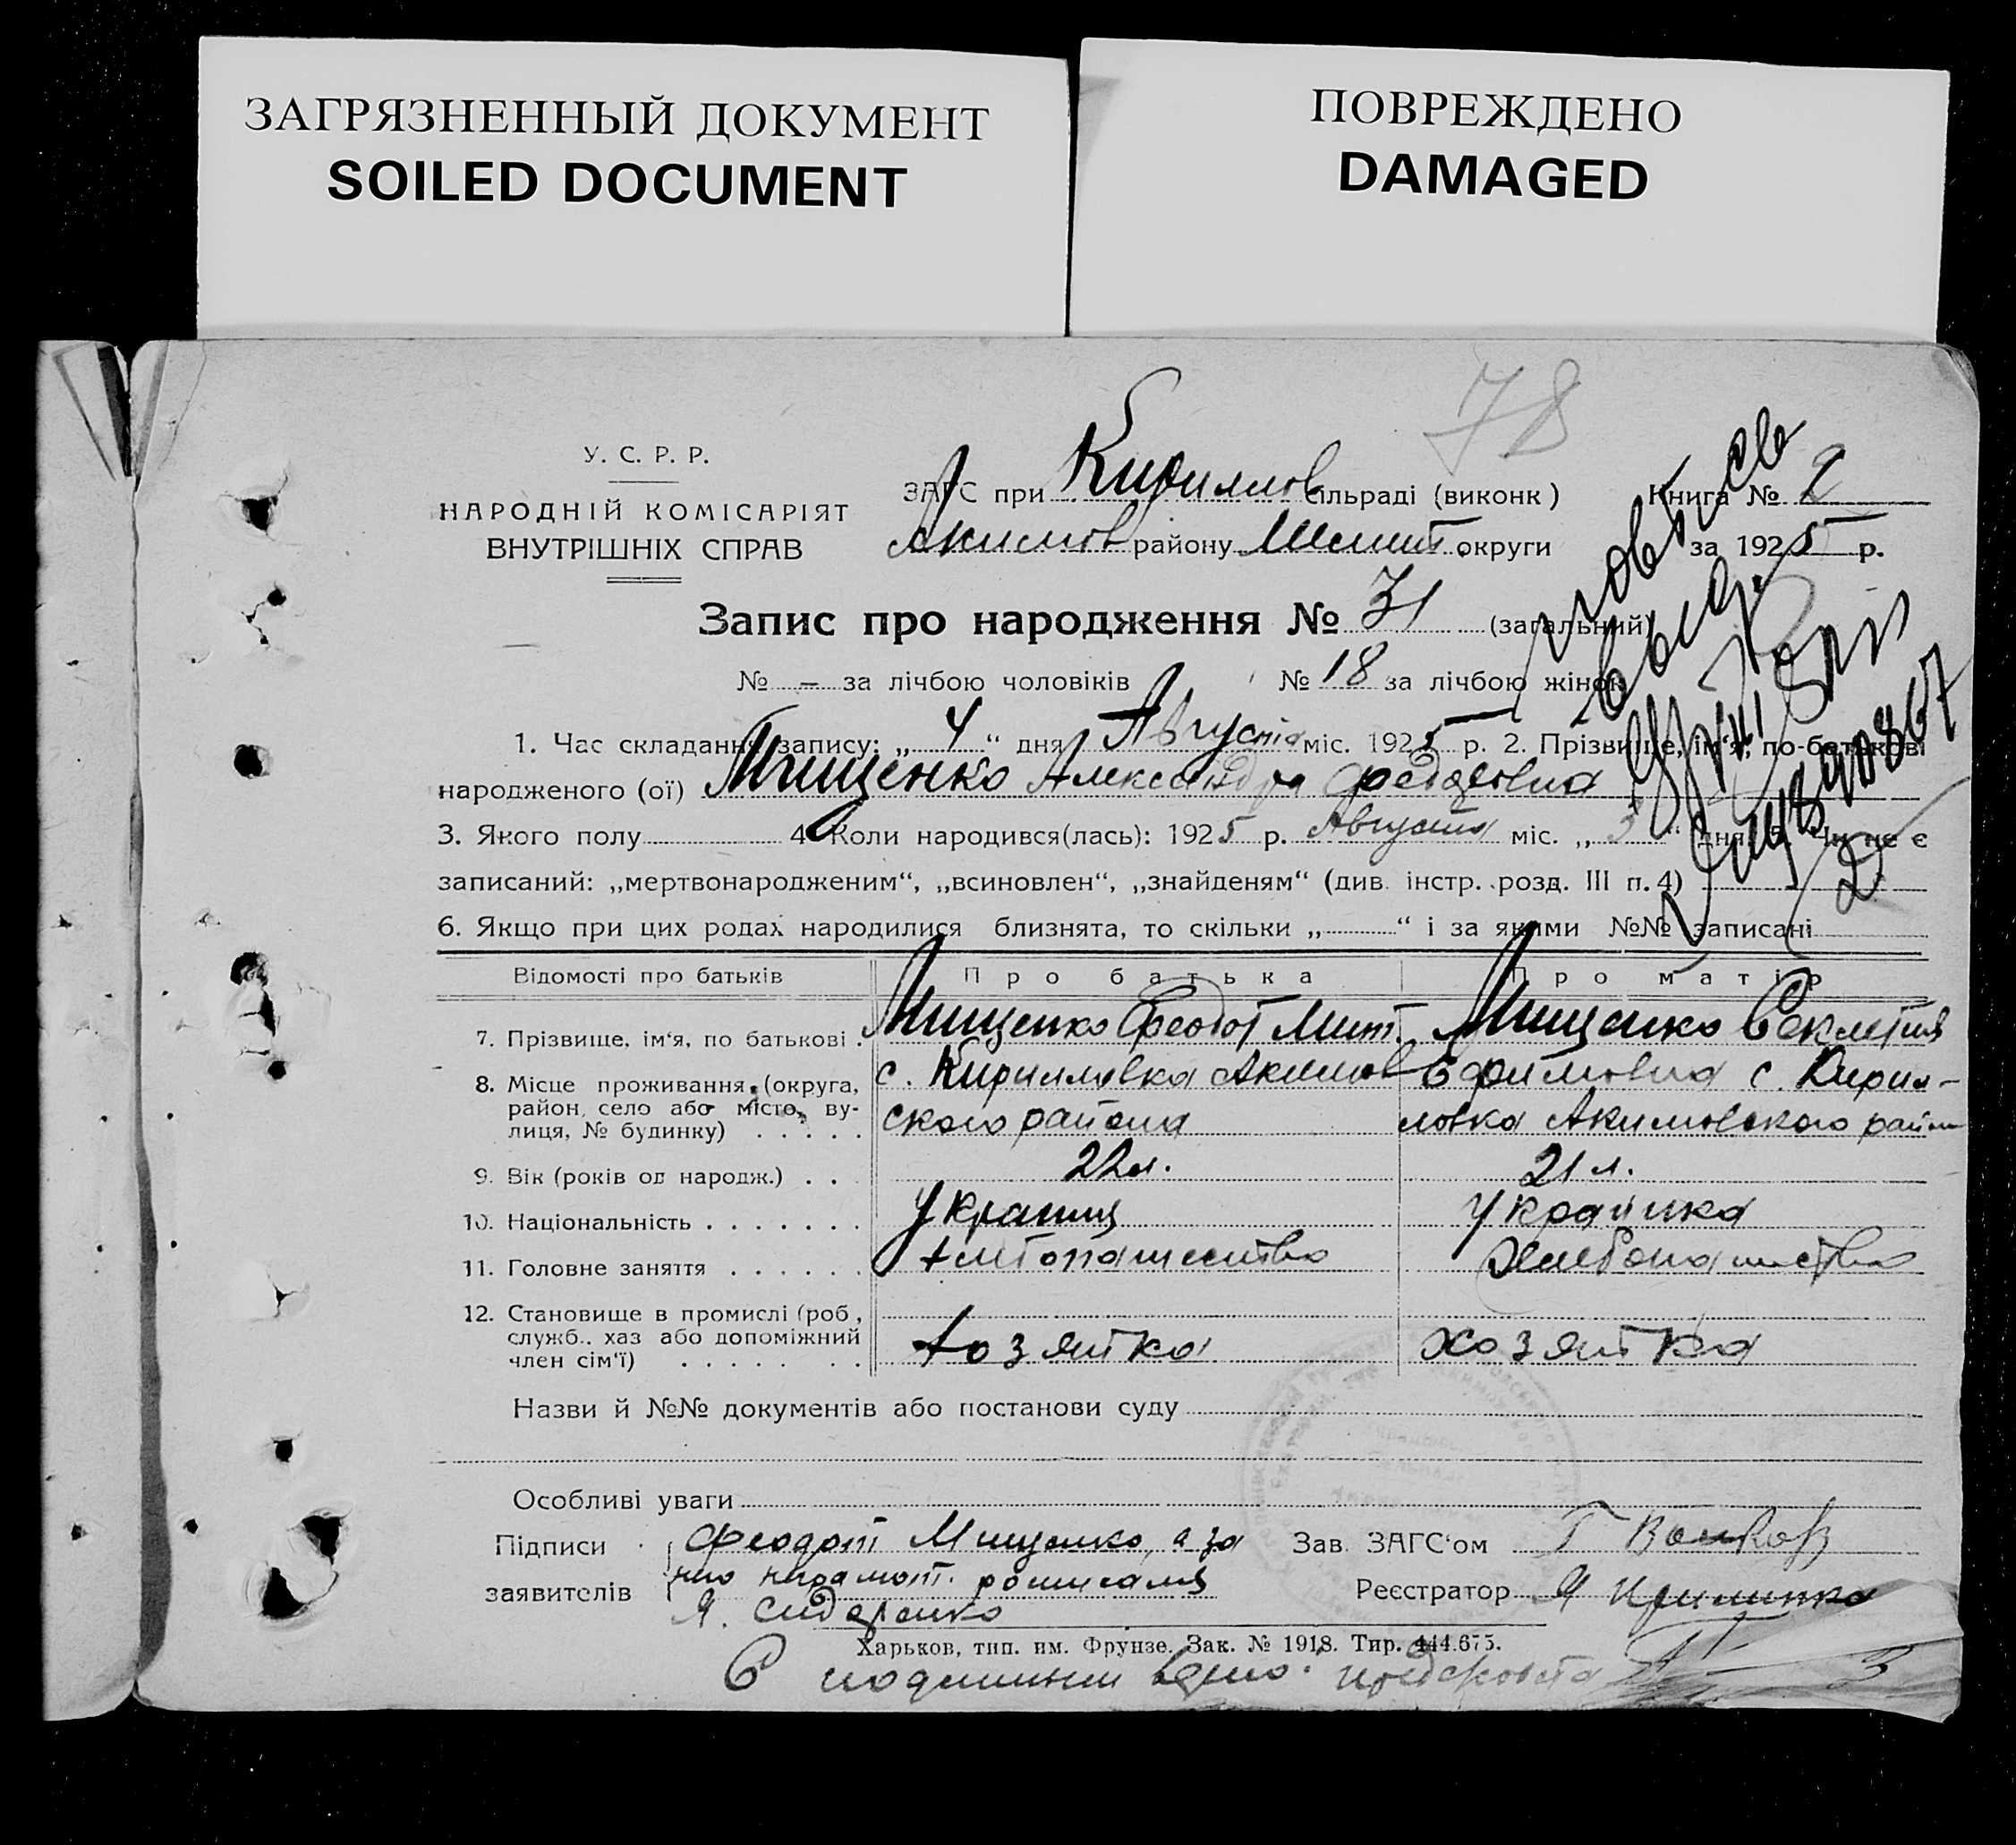 ЗАГРЯЗНЕННЫЙ ДОКУМЕНТ
SOILED DOCUMENT
ПОВРЕЖДЕНО
DAMAGED
78
У. С. Р. Р.
НАРОДНІЙ КОМІСАРІЯТ
ВНУТРІШНІХ СПРАВ
ЗАГС при Кириллов сільраді (виконк) Книга № 2
Акимов району Мелит округи за 1925 р.
Запис про народження № 31 (загальний)
№ – за лічбою чоловіків № 18 за лічбою жінок
1. Час складання запису: „4“ дня Августа міс. 1925 р. 2. Прізвище, ім'я, по-батькові
народженого (ої) Мищенко Александра Федотовна
3. Якого полу 4 Коли народився(лась): 1925 р. Августа міс. „3“ дня 5. Чи не є
записаний: „мертвонародженим“, „всиновлен“, „знайденям“ (див. інстр. розд. III п. 4)
6. Якщо при цих родах народилися близнята, то скільки „ “ і за якими №№ записані
Відомості про батьків Про батька Про матір
7. Прізвище, ім'я, по батькові Мищенко Феодот Мит. Мищенко Секлетия
8. Місце проживання (округа, с. Кирилловка Акимов Ефимовна с. Кирил-
район, село або місто, ву- ского района ловка Акимовского район
лиця, № будинку)
9. Вік (років од народж.) 22 л. 21 л.
10. Національність Украинц Украинка
11. Головне заняття Хлебопашество Хлебопашество
12. Становище в промислі (роб,
служб., хаз або допоміжний хозяйка хозяйка
член сім'ї)
Назви й №№ документів або постанови суду
Особливі уваги
Підписи Феодот Мищенко, а за Зав. ЗАГС'ом Г Волков
заявителів него неграмот. росписался Реєстратор Я
Я. Сидоренко
Харьков, тип. им. Фрунзе. Зак. № 1918. Тир. 444.675.
С подлинным верно:
3